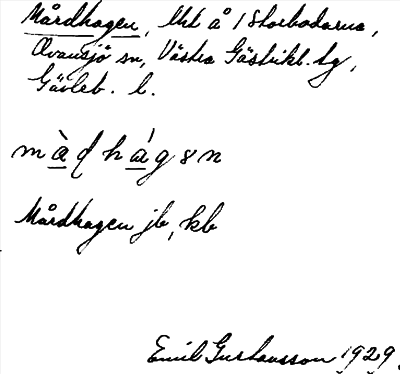 Mårdhagen, lht å 1 Storbodarna,
Ovansjö sn, Västra Gästrikl. tg,
Gävleb. l.
Mårdhagen jb, kb
Emil Gustavsson 1929.